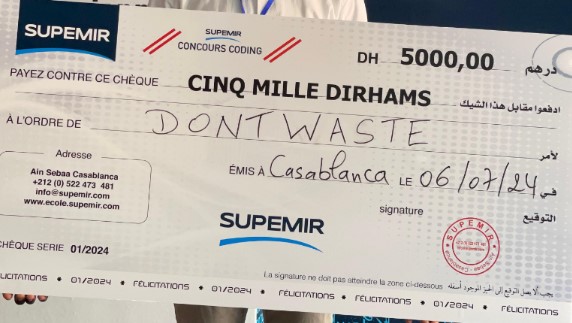 SUPEMIR
SUPEMIR
CONCOURS CODING
SUPEMIR
DH 5000,00 درهم
PAYEZ CONTRE CE CHÈQUE CINQ MILLE DIRHAMS ادفعوا مقابل هذا الشيك
À L'ORDRE DE DONT WASTE لأمر
ÉMIS À Casablanca LE 06/07/24 في
Adresse
Ain Sebaa Casablanca
+212 (0) 522 473 481
info@supemir.com
www.ecole.supemir.com
signature التوقيع
SUPEMIR
SUPEMIR
CHÈQUE SERIE 01/2024
La signature ne doit pas atteindre la zone ci-dessous
يجب ألا يصل التوقيع إلى الحيز الموجود أسفله
LICITATIONS • 01/2024 • FÉLICITATIONS • 01/2024 • FÉLICITATIONS • 01/2024 • FÉLICITATIONS • 01/2024 • FÉLICITATIONS